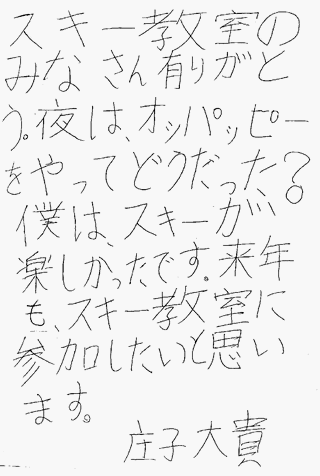 スキー教室の
みなさん有りがと
う。夜は、オッパッピー
をやってどうだった?
僕は、スキーが
楽しかったです。来年
も、スキー教室に
参加したいと思い
ます。
庄子大貴